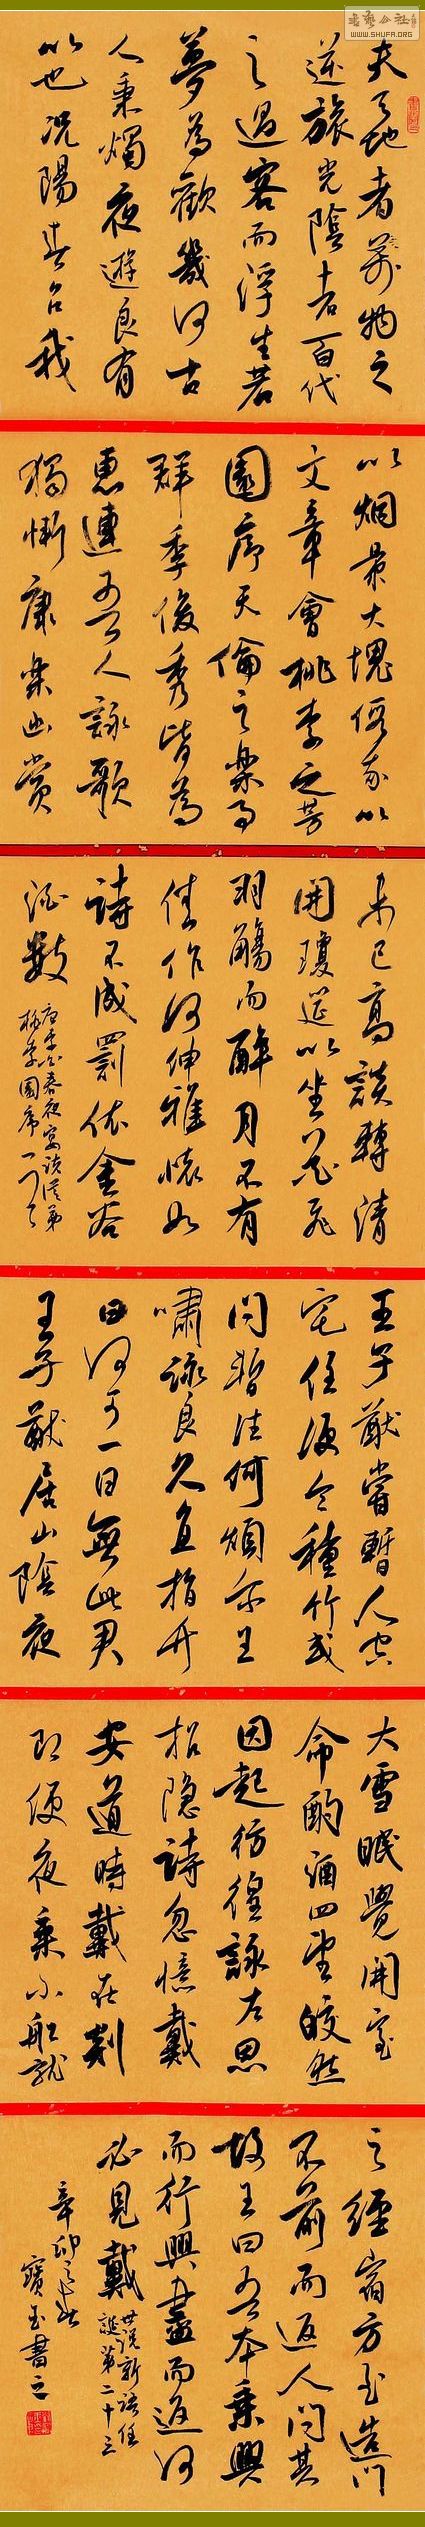 書藝公社
WWW.SHUFA.ORG
夫天地者萬物之
逆旅光陰者百代
之過客而浮生若
夢為歡幾何古
人秉燭夜遊良有
以也況陽春召我
以烟景大塊假我以
文章會桃李之芳
園序天倫之樂事
群季俊秀皆為
惠連吾人詠歌
獨慚康樂幽賞
未已高談轉清
開瓊筵以坐花飛
羽觴而醉月不有
佳作何伸雅懷如
詩不成罰依金谷
酒數
唐李白春夜宴諸從弟
桃李園序一つ
王子猷嘗暫人空
宅住便令種竹或
問暫住何煩爾王
嘯詠良久直指竹
曰何可一日無此君
王子猷居山陰夜
大雪眠覺開室
命酌酒四望皎然
因起彷徨詠左思
招隐詩忽憶戴
安道時戴在剡
即便夜乘小船就
之經宿方至造門
不前而返人問其
故王曰吾本乘興
而行興盡而返何
必見戴
世说新语任
誕第二十三
辛卯之秋
寶玉書之